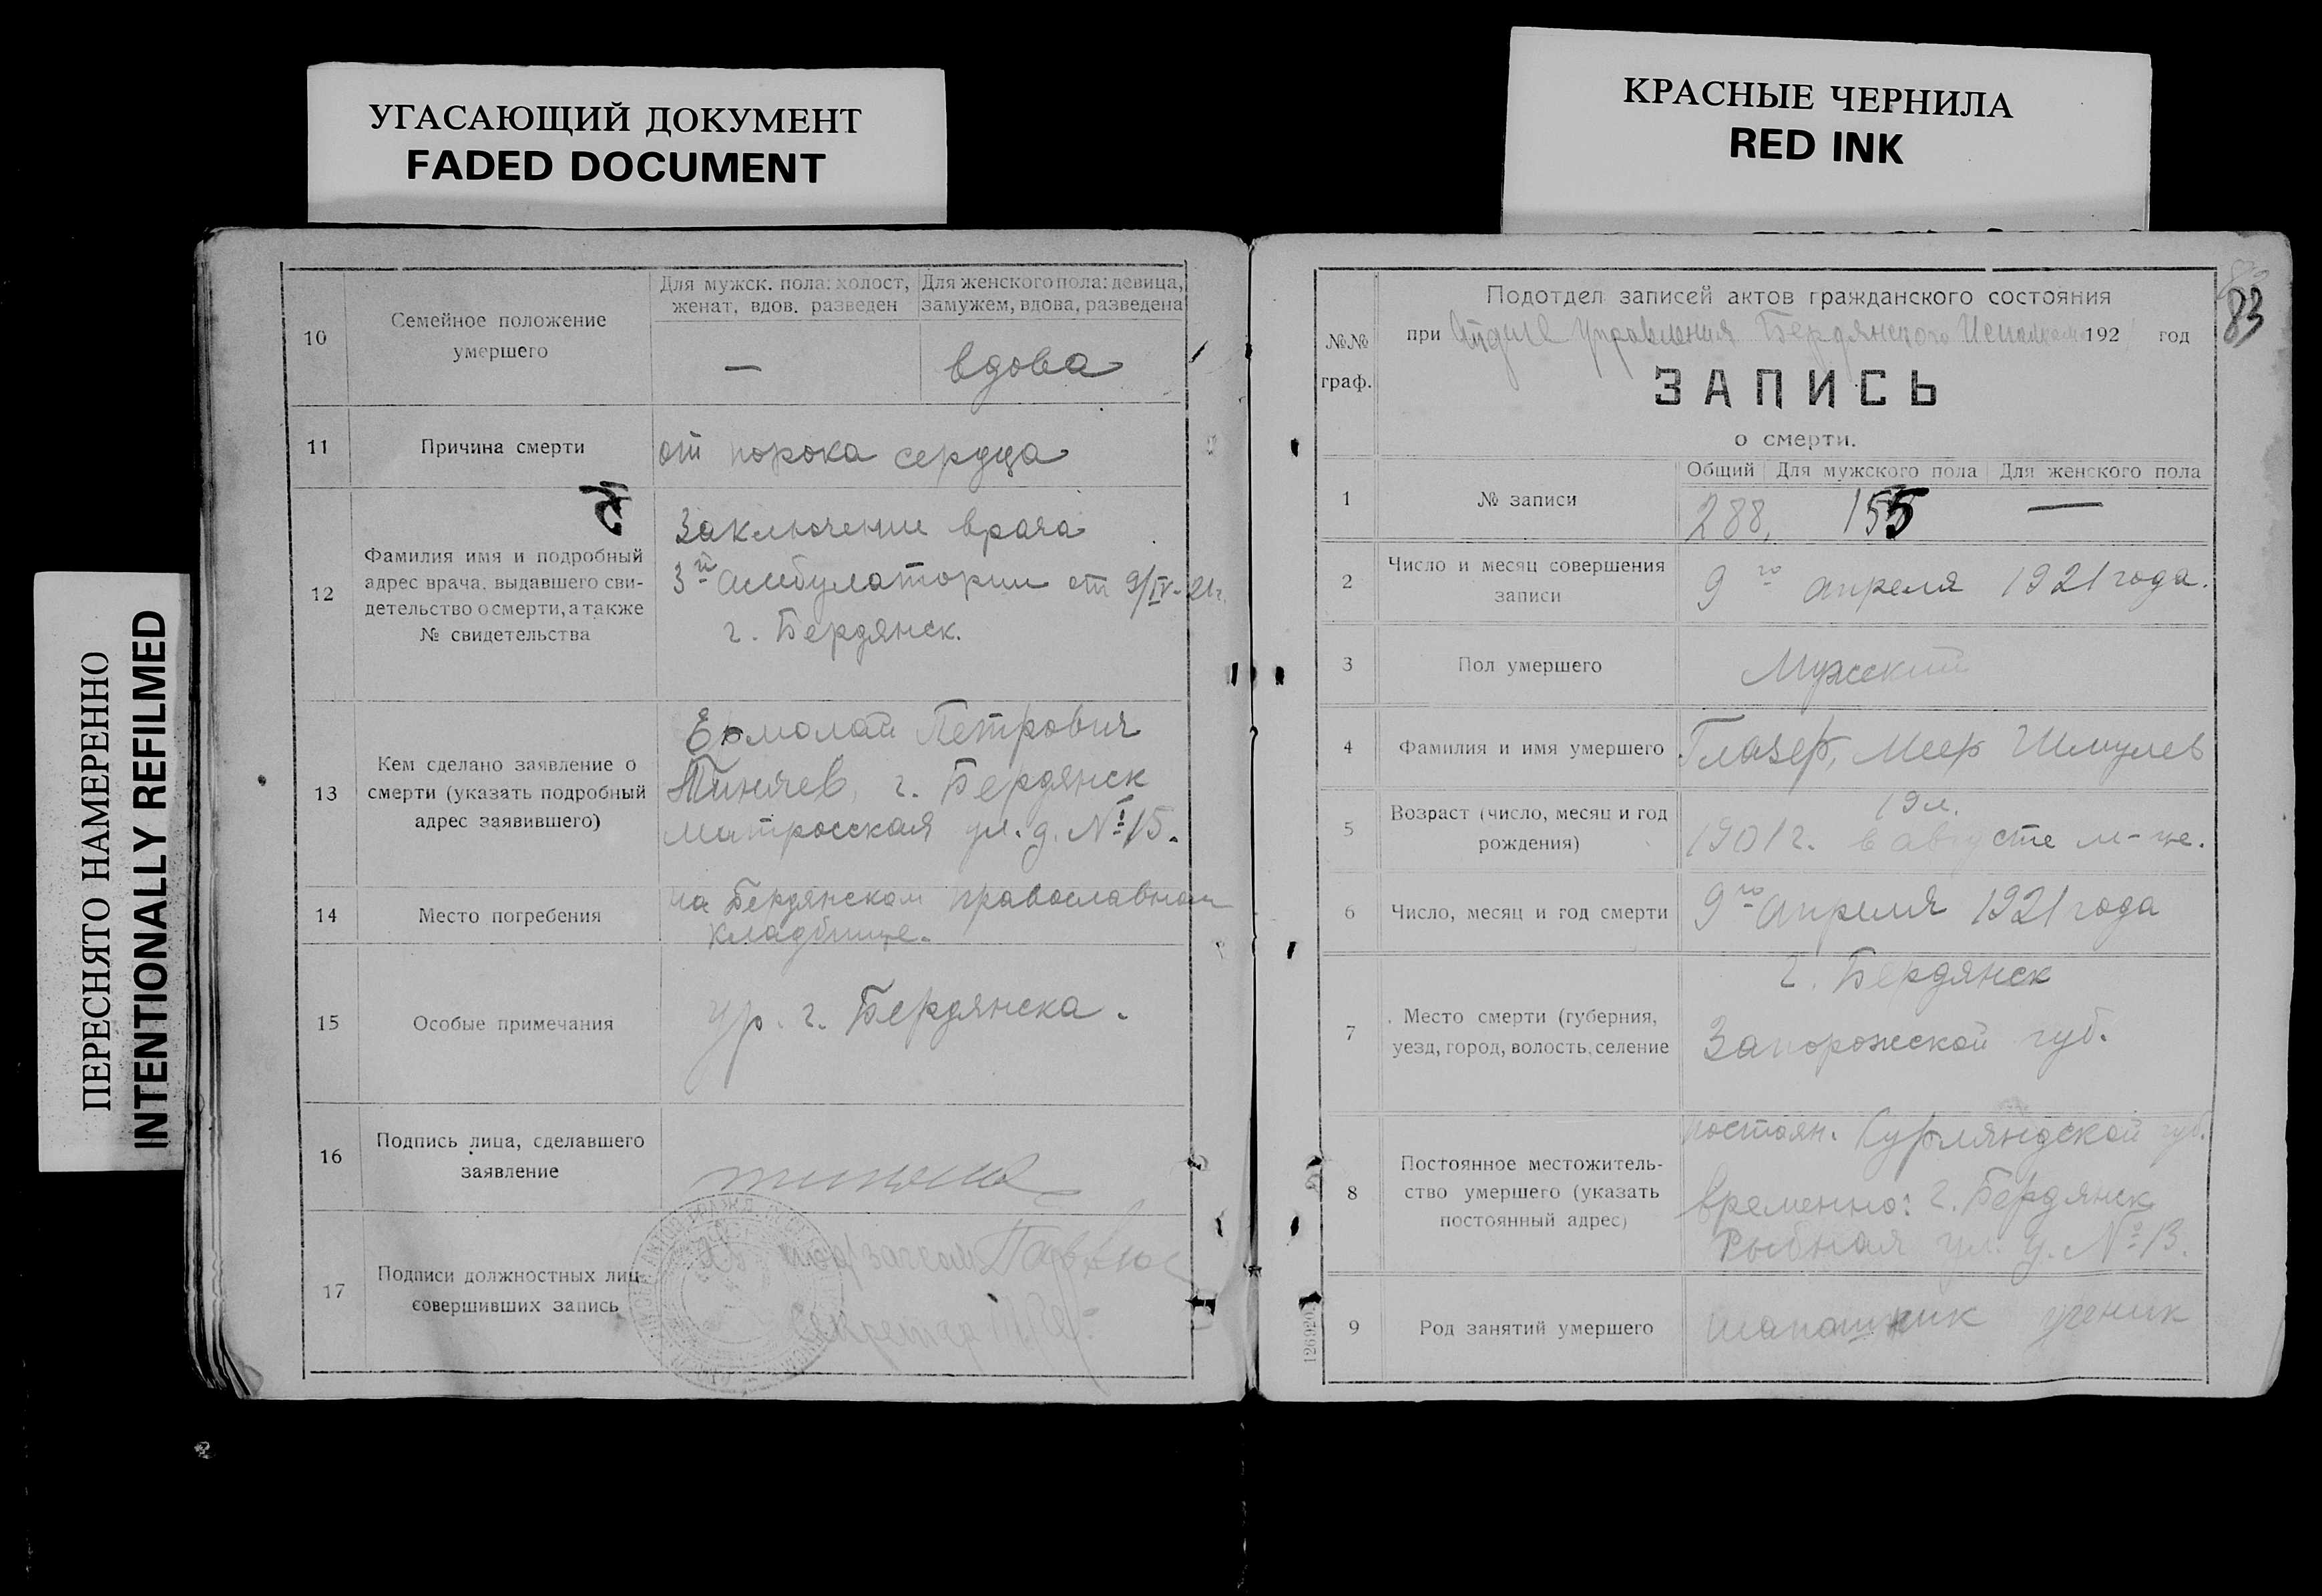 УГАСАЮЩИЙ ДОКУМЕНТ
FADED DOCUMENT
КРАСНЫЕ ЧЕРНИЛА
RED INK
ПЕРЕСНЯТО НАМЕРЕННО
INTENTIONALLY REFILMED
10
Семейное положение
умершего
Для мужск. пола: холост,
женат, вдов. разведен
Для женского пола: девица,
замужем, вдова, разведена
—
вдова
11
Причина смерти
от порока сердца
12
Фамилия имя и подробный
адрес врача, выдавшего сви-
детельство о смерти, а также
№ свидетельства
Заключение врача
3й амбулатории от 9/IV-21г.
г. Бердянск.
13
Кем сделано заявление о
смерти (указать подробный
адрес заявившего)
Ермолай Петрович
Тинячев, г. Бердянск
Матросская ул. д. № 15.
14
Место погребения
на Бердянском православном
кладбище.
15
Особые примечания
ур. г. Бердянска.
16
Подпись лица, сделавшего
заявление
17
Подписи должностных лиц
совершивших запись
Секретар
83
№№
граф.
Подотдел записей актов гражданского состояния
при Отделе Управления Бердянского Исполкома 192 год
ЗАПИСЬ
о смерти.
1
№ записи
Общий
Для мужского пола
Для женского пола
288,
155
—
2
Число и месяц совершения
записи
9го апреля 1921 года.
3
Пол умершего
Мужский
4
Фамилия и имя умершего
Глазер, Меер Шмулев
5
Возраст (число, месяц и год
рождения)
19 л.
1901 г. в августе м-це.
6
Число, месяц и год смерти
9го Апреля 1921 года
7
Место смерти (губерния,
уезд, город, волость, селение
г. Бердянск
Запорожской губ.
8
Постоянное местожитель-
ство умершего (указать
постоянный адрес)
постоян. Курляндской губ.
временно: г. Бердянск
Рыбная ул. д. № 13.
9
Род занятий умершего
шапошник ученик
126920